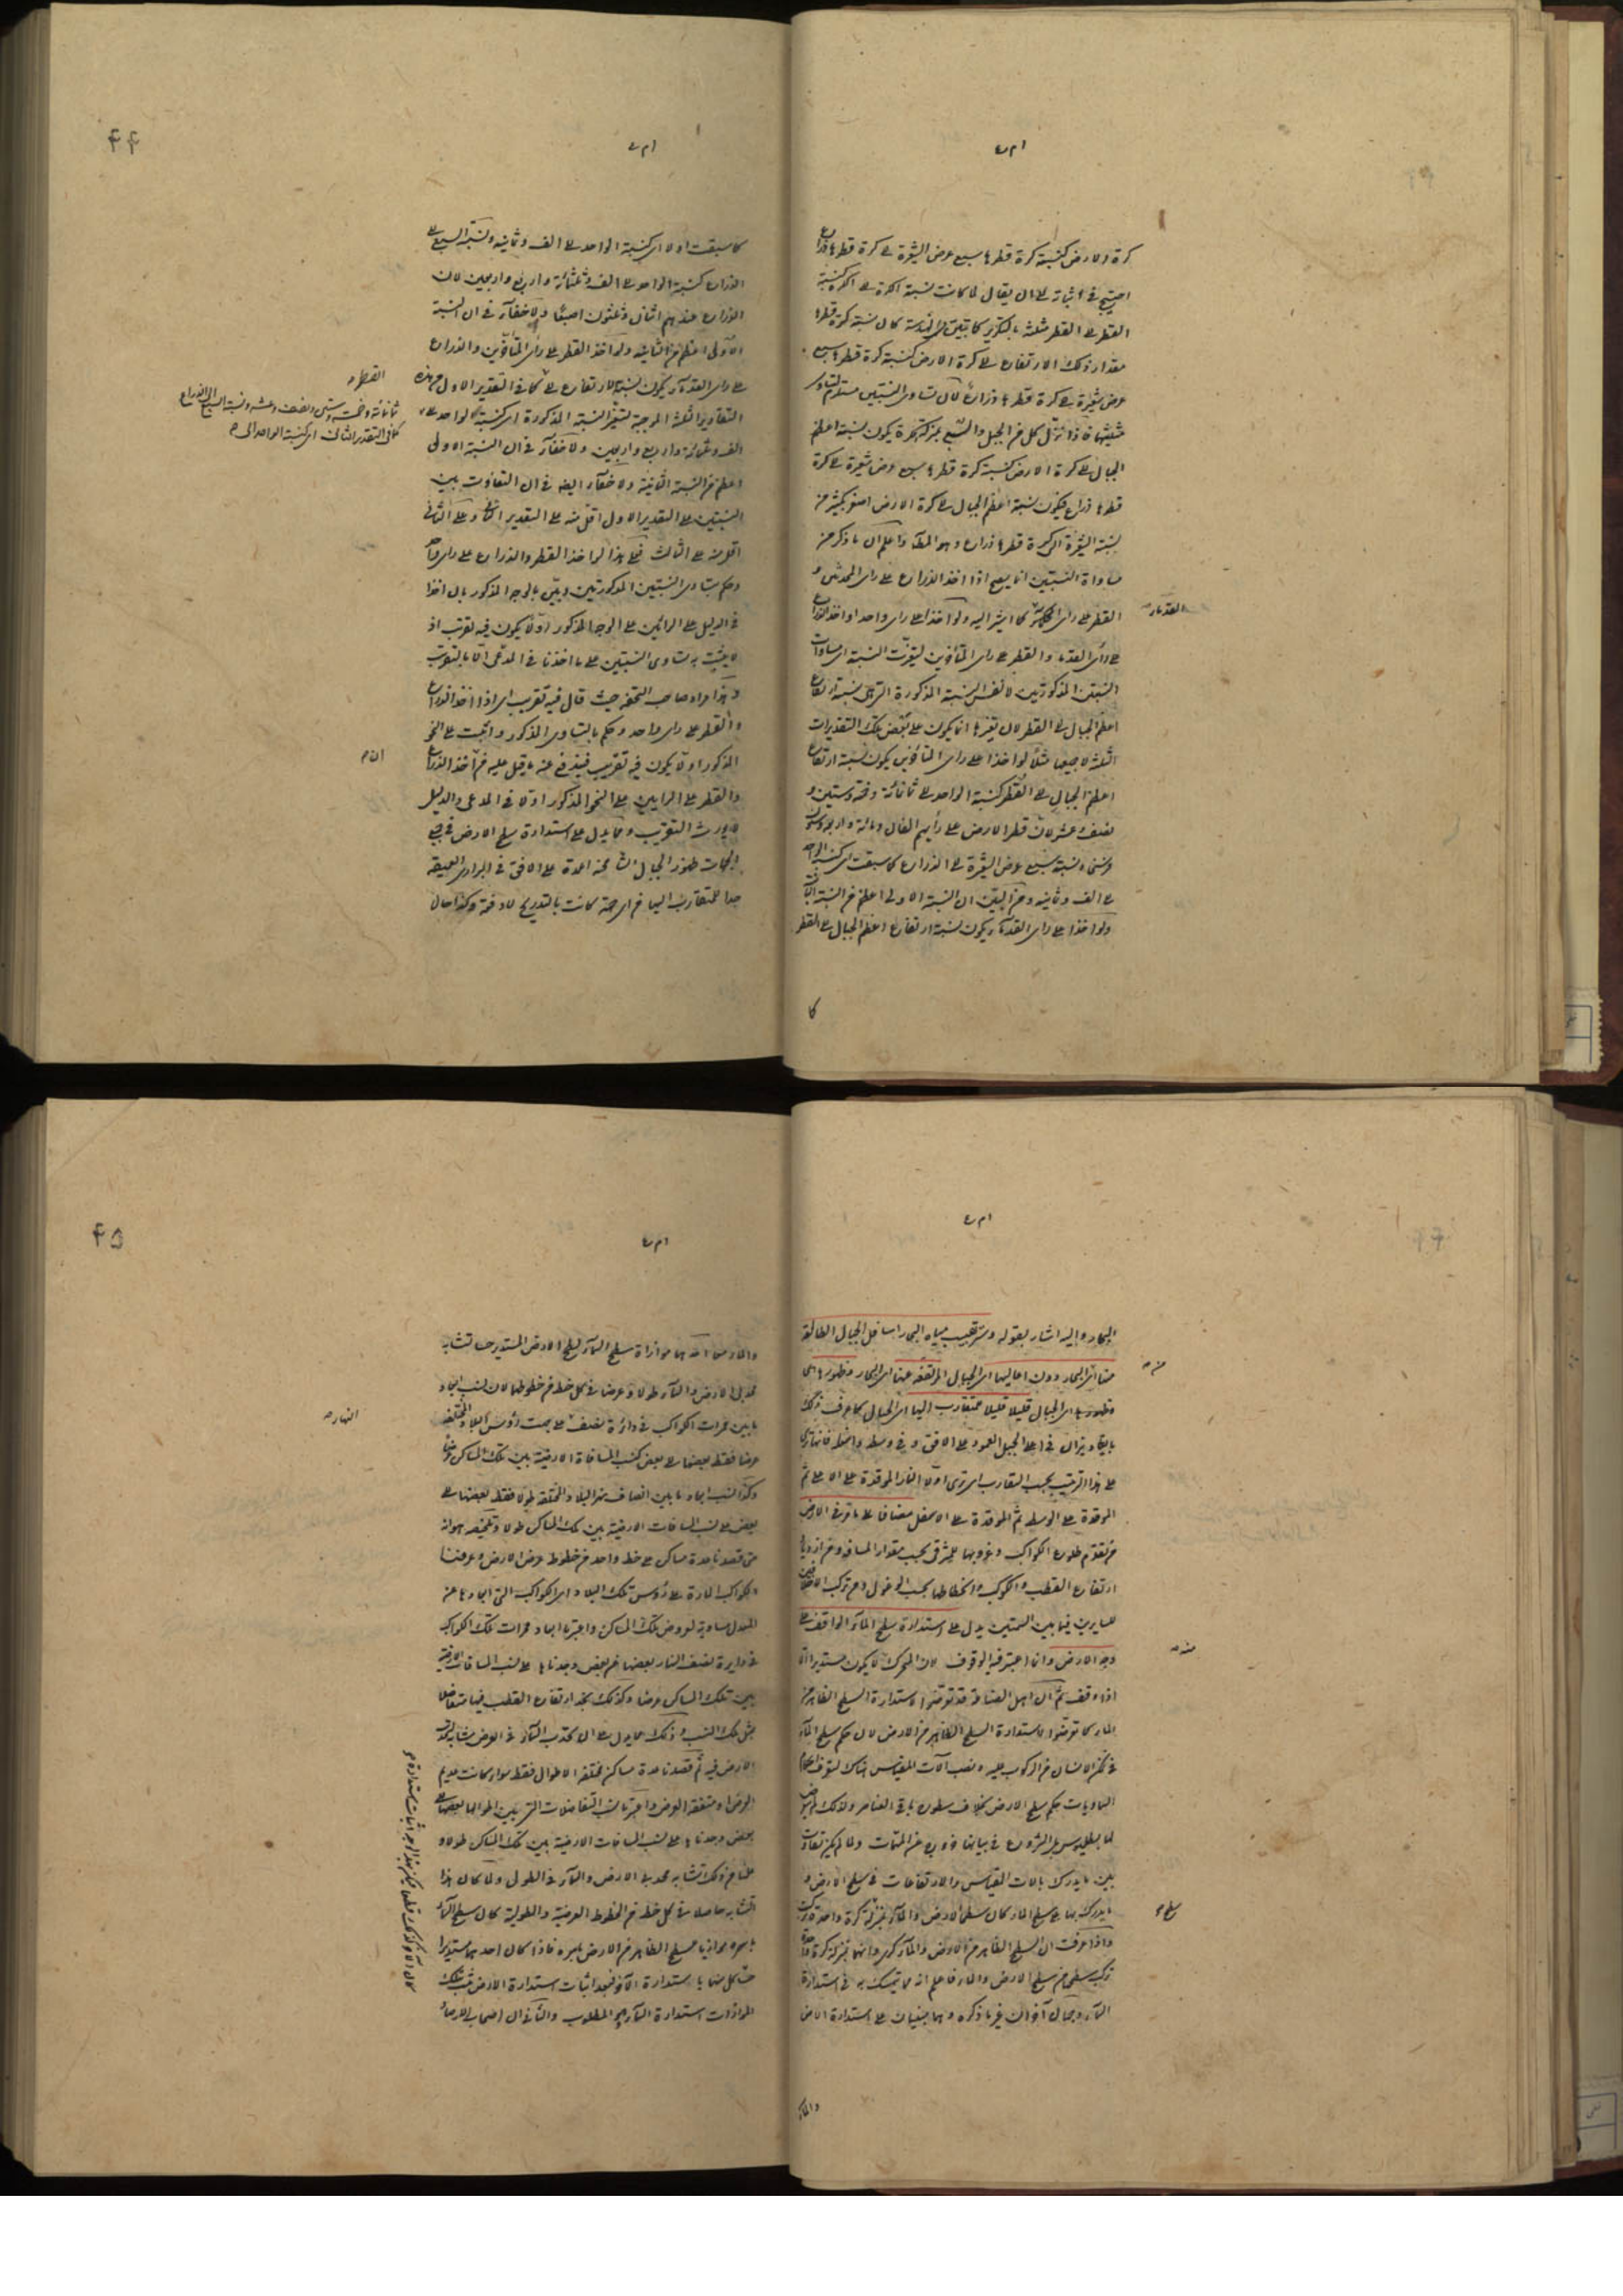 كرة الارض كنسبة كرة قطرها سبع عرض الشعيرة الى كرة قطرها ذراع
احتيج في اثباته الى ان يقال لما كانت نسبة الكرة الى الكرة كنسبة
القطر الى القطر مثلثة بالتكرير كما تبين في الهندسة كان نسبة كرة قطرها
مقدار ذلك الارتفاع الى كرة الارض كنسبة كرة قطرها سبع
عرض شعيرة الى كرة قطرها ذراع لان تساوي النسبتين مستلزم لتساوي
مثلثتهما فاذا نزل كل من الجبل والسبع بمنزلة كرة يكون نسبة اعظم
الجبال الى كرة الارض كنسبة كرة قطرها سبع عرض شعيرة الى كرة
قطرها ذراع فيكون نسبة اعظم الجبال الى كرة الارض اصغر بكثير من
نسبة الشعيرة الى كرة قطرها ذراع وهو المطلوب واعلم ان ما ذكر من
مساواة النسبتين انما يصح اذا اخذ الذراع على راي المحدثين و
القطر على راي كما اشير اليه ولو اخذا على راي واحد او اخذ الذراع
على راي القدماء والقطر على راي المتأخرين لتغيرت النسبة اي مساوات
النسبتين المذكورتين لا نفس النسبة المذكورة التي هي نسبة ارتفاع
اعظم الجبال الى القطر لان تغيرها انما يكون على بعض تلك التقديرات
الثلثة لا جميعها مثلا لو اخذا على راي المتأخرين يكون نسبة ارتفاع
اعظم الجبال الى القطر كنسبة الواحد الى ثمانمائة وخمسة وستين و
نصف وعشر لان قطر الارض على رأيهم الفان ومائة واربعة وستون
فرسخا ونسبة سبع عرض الشعيرة الى الذراع كما سبقت اي كنسبة الواحد
الى الف وثمانية ومن البين ان النسبة الاولى اعظم من النسبة الثانية
ولو اخذا على راي القدماء يكون نسبة ارتفاع اعظم الجبال الى القطر
القدماء
كما
۴۴
كما سبقت اولا اي كنسبة الواحد الى الف وثمانية ونسبة السبع الى
الذراع كنسبة الواحد الى الف وثلثمائة واربع واربعين لان
الذراع عندهم اثنان وثلثون اصبعا ولا خفاء في ان النسبة
الاولى اعظم من الثانية ولو اخذ القطر على راي المتأخرين والذراع
على راي القدماء يكون نسبة الارتفاع الى كما في التقدير الاول
التقادير الثلثة الموجبة لتغير النسبة المذكورة اي كنسبة الواحد الى
الف وثلثمائة واربع واربعين ولا خفاء في ان النسبة الاولى
اعظم من النسبة الثانية ولا خفاء ايضا في ان التفاوت بين
النسبتين على التقدير الاول اقل منه على التقدير الثاني وعلى الثاني
اقل منه على الثالث فعلى هذا لو اخذ القطر والذراع على راي واحد
وحكم بتساوي النسبتين المذكورتين وبين بالوجه المذكور بان اخذا
في الدليل على الرائين على الوجه المذكور اولا يكون فيه تقريب اذ
لا يثبت به تساوي النسبتين على ما اخذنا في المدعى الا بالتقريب
وهذا مراد صاحب التحفة حيث قال فيه تقريب اي اذا اخذ الذراع
والقطر على راي واحد وحكم بالتساوي المذكور واثبت على النحو
المذكور اولا يكون فيه تقريب فيندفع عنه ما قيل عليه من اخذ الذراع
والقطر على الرايين على النحو المذكور اولا في المدعى والدليل
لا يورث التقريب ومما يدل على استدارة سطح الارض في جميع
الجهات ظهور الجبال الشامخة اعمدة على الافق في البراري العميقة
جدا للمتقارب اليها من اي جهة كانت بالتدريج لا دفعة وكذا حال
القطر
ثمانمائة وخمسة وستين ونصف وعشر ونسبة السبع الى الذراع
كما في التقدير الثاني اي كنسبة الواحد الى
البحار واليه اشار بقوله وستر تحبب مياه البحار اسافل الجبال الطالعة
منها اي البحار دون اعاليها اي الجبال المرتفعة عنها اي البحار وظهورها اي
وظهورها اي الجبال قليلا قليلا للمتقارب اليها اي الجبال كما عرف ذلك
بايقاد نيران في اعلى الجبل العمود على الافق وفي وسطه واسفله فانها ترى
على هذا الترتيب بحسب التقارب اي ترى اولا النار الموقدة على الاعلى ثم
الموقدة على الوسط ثم الموقدة على الاسفل مضافا الى ما مر في الارض
من تقدم طلوع الكواكب وغروبها للمشرقي بحسب مقدار المسافة ومن ازدياد
ارتفاع القطب والكواكب وانحطاطها بحسب الوغول ومن تركب الاختلافين
للسايرين فيما بين السمتين يدل على استدارة سطح الماء الواقف على
وجه الارض وانما اعتبر فيه الوقوف لان المتحرك لا يكون مستديرا الا
اذا وقف ثم ان اهل الصناعة قد تعرضوا لاستدارة السطح الظاهر من
الماء كما تعرضوا لاستدارة السطح الظاهر من الارض لان حكم سطح الماء
في تمكن الانسان من الركوب عليه ونصب آلات المقياس هناك لتعرف احكام
السماويات حكم سطح الارض بخلاف سطوح باقي العناصر ولذلك لم يتعرض
لها بطلميوس قبل الشروع في بيانها وعن المتممات ولما لم يكن تفاوت
بين ما يدرك بالات المقياس والارتفاعات في سطح الارض و
ما يدرك بها على سطح الماء كان سطحا الارض والماء بمنزلة كرة واحدة
واذا عرفت ان السطح الظاهر من الارض والماء كري وانهما بمنزلة كرة واحدة
تركب سطحها من سطح الارض والماء فاعلم انه مما يتمسك به في استدارة
الماء وجهان آخران غير ما ذكره وهما مبنيان على استدارة الارض
سطح
والماء
۴۵
والماء من احدهما موازاة سطح الماء لسطح الارض المستدير حتى تشابه
تحدبا الارض والماء طولا وعرضا في كل خط من خطوطها لان نسب ابعاد
ما بين ممرات الكواكب في دائرة نصف على سمت رؤس البلاد المختلفة
عرضا فقط بعضها الى بعض كنسب المسافات الارضية بين تلك المساكن عرضا
وكذا نسب ابعاد ما بين انصاف نهر البلاد المختلفة طولا فقط بعضها الى
بعض على نسب المسافات الارضية بين تلك المساكن طولا وتلخيصه هو انه
متى قصدنا عدة مساكن على خط واحد من خطوط عرض الارض وعرفنا
الكواكب المارة على رؤس تلك البلاد اي الكواكب التي ابعادها عن
المعدل مساوية لعروض تلك المساكن واعتبرنا ابعاد ممرات تلك الكواكب
في دايرة نصف النهار بعضها من بعض وجدناها على نسب المسافات الارضية
بين تلك المساكن عرضا وكذلك نجد ارتفاع القطب فيها متفاضلا
بمثل تلك النسب وذلك مما يدل على ان تحدب الماء في العرض مشابه لتحدب
الارض فيه ثم قصدنا عدة مساكن مختلفة الاطوال فقط سواء كانت عديم
العرض او متفقة العرض واعتبرنا نسب التفاضلات التي بين اطوالها بعضها الى
بعض وجدناها على نسب المسافات الارضية بين تلك المساكن طولا و
علمنا من ذلك تشابه تحدبي الارض والماء في الطول ولما كان هذا
التشابه حاصلا في كل خط من الخطوط العرضية والطولية كان سطح الماء
باسره موازيا لسطح الظاهر من الارض باسره فاذا كان احدهما مستديرا
كان الآخر
المواذات استدارة الماء وهو المطلوب والثاني ان اصحاب الارصاد
النهار